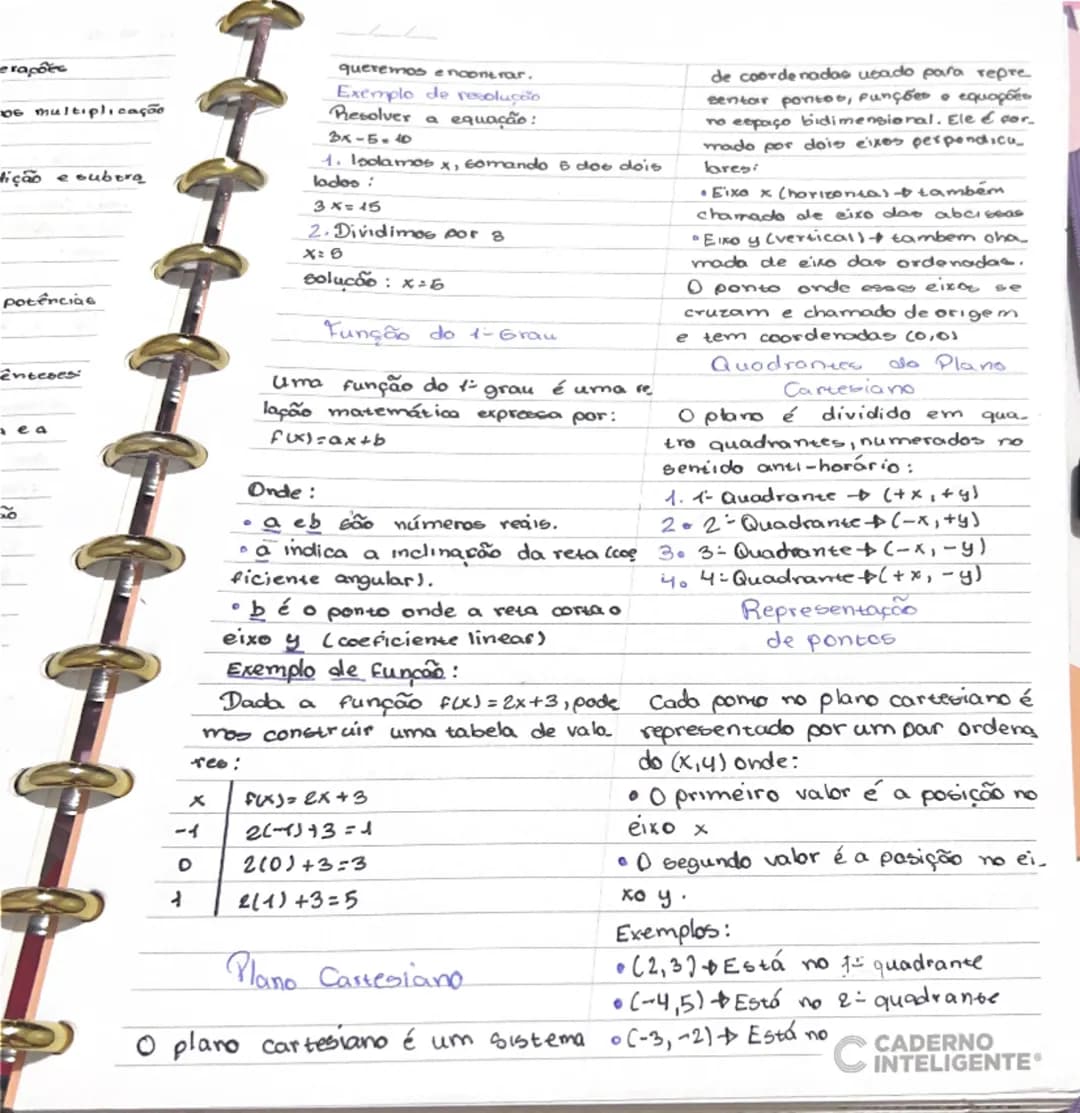 erações
os multiplicação
dição e subtra
potências
ênteses:
a e a
ão
queremos encontrar.
Exemplo de resolução
Resolver a equação:
3x-5=10
1. Isolamos x, somando 5 dos dois
lados:
3x=15
2. Dividimos por 3
x=5
solução: x=5
Função do 1º Grau
Uma função do 1º grau é uma re
lação matemática expressa por:
f(x)=ax+b
Onde:
• a e b são números reais.
• a indica a inclinação da reta (coe
ficiente angular).
• b é o ponto onde a reta corta o
eixo y (coeficiente linear)
Exemplo de função:
Dada a função f(x)=2x+3, pode
mos construir uma tabela de valo
res:
x f(x)=2x+3
-1 2(-1)+3=1
0 2(0)+3=3
1 2(1)+3=5
Plano Cartesiano
O plano cartesiano é um sistema
de coordenadas usado para repre
sentar pontos, funções e equações
no espaço bidimensional. Ele é for
mado por dois eixos perpendicu
lares:
• Eixo x (horizontal) → também
chamado de eixo das abcissas
• Eixo y (vertical) → tambem cha
mada de eixo das ordenadas.
O ponto onde esses eixos se
cruzam e chamado de origem
e tem coordenadas (0,0)
Quadrantes do Plano
Cartesiano
O plano é dividido em qua
tro quadrantes, numerados no
sentido anti-horário:
1. 1º Quadrante → (+x,+y)
2. 2º Quadrante → (-x,+y)
3. 3º Quadrante → (-x,-y)
4. 4º Quadrante → (+x,-y)
Representação
de pontos
Cada ponto no plano cartesiano é
representado por um par ordena
do (x,y) onde:
• O primeiro valor é a posição no
eixo x
• O segundo valor é a posição no ei
xo y.
Exemplos:
• (2,3) → Está no 1º quadrante
• (-4,5) → Está no 2º quadrante
• (-3,-2) → Está no
CADERNO
INTELIGENTE®